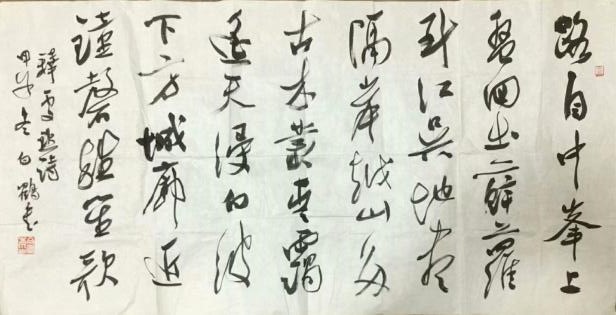 路自中峯上
盤回出薜蘿
到江吳地盡
隔岸越山多
古木叢青靄
遙天浸白波
下方城廓近
鐘磬雜笙歌
釋處默詩
甲午冬白鶴書